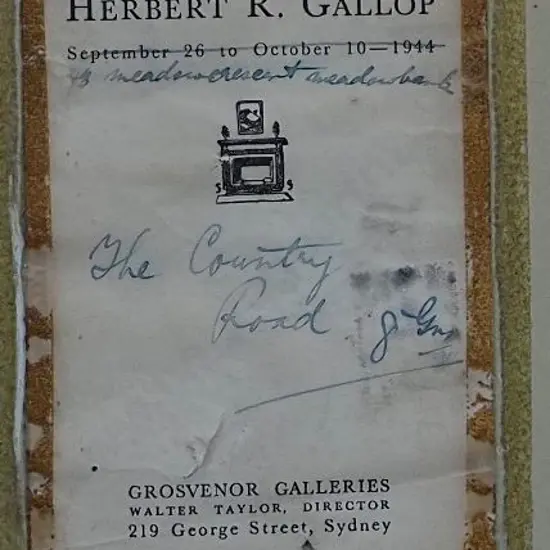 HERBERT R. GALLOP
September 26 to October 10—1944
43 meadowcrescent meadowbank
The Country
Road 8 Gns
GROSVENOR GALLERIES
WALTER TAYLOR, DIRECTOR
219 George Street, Sydney